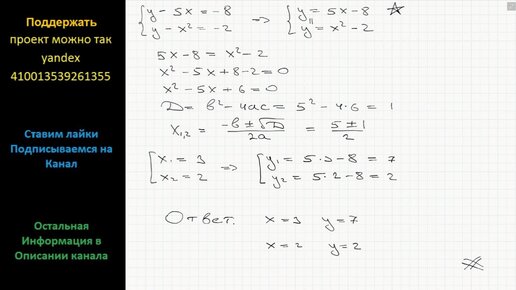 Поддержать
проект можно так
yandex
410013539261355
Ставим лайки
Подписываемся на
Канал
Остальная
Информация в
Описании канала
{ y - 5x = -8 => { y = 5x - 8
{ y - x² = -2 { y = x² - 2
5x - 8 = x² - 2
x² - 5x + 8 - 2 = 0
x² - 5x + 6 = 0
D = b² - 4ac = 5² - 4·6 = 1
x₁,₂ = (-b ± √D) / 2a = (5 ± 1) / 2
[ x₁ = 3 => { y₁ = 5·3 - 8 = 7
[ x₂ = 2 { y₂ = 5·2 - 8 = 2
Ответ: x = 3 y = 7
x = 2 y = 2